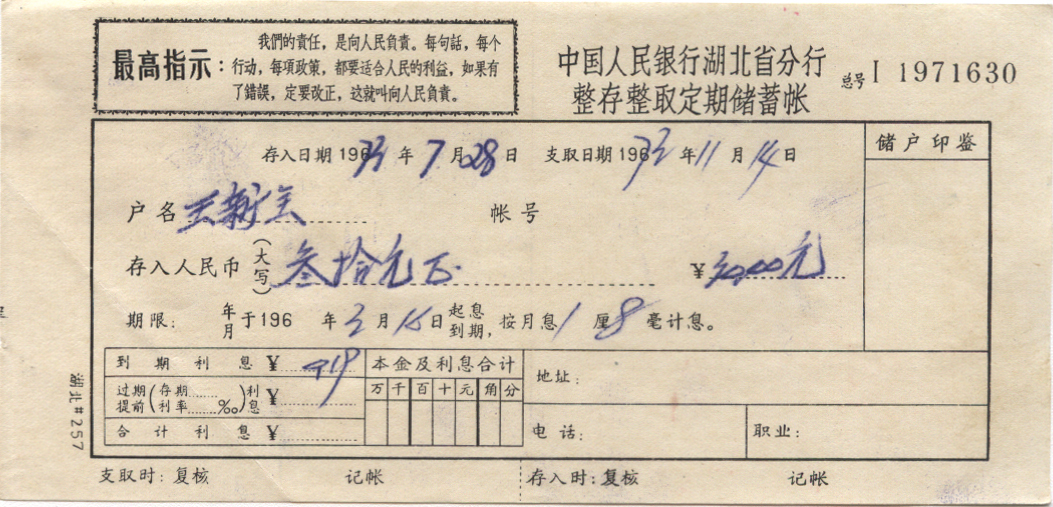 最高指示：
我們的責任，是向人民負責。每句話，每个
行动，每項政策，都要适合人民的利益，如果有
了錯誤，定要改正，这就叫向人民負責。
中国人民银行湖北省分行
整存整取定期储蓄帐
总号 I 1971630
存入日期196 年7月28日 支取日期196 年11月14日
储户印鉴
户名王新 帐号
存入人民币（大写）叁拾元正 ¥30.00元
期限： 年月于196 年 月 日起息到期，按月息1厘8毫计息。
到期利息¥ 本金及利息合计
万千百十元角分
过期提前（存期……利率……‰）利息¥
合计利息¥
地址：
电话： 职业：
湖北#257
支取时：复核 记帐 存入时：复核 记帐